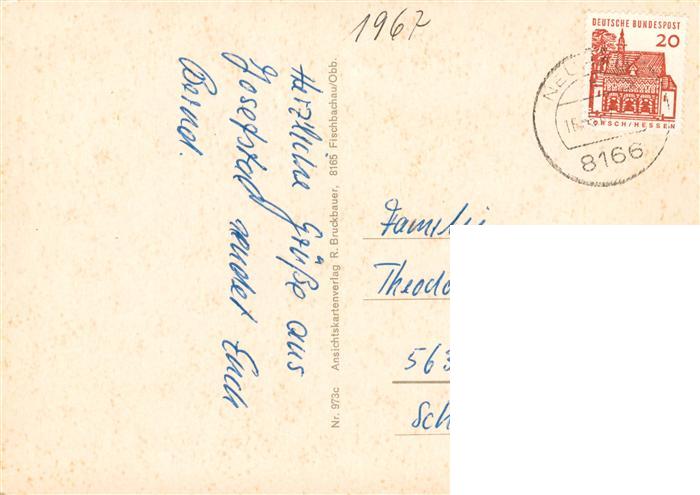 1967
DEUTSCHE BUNDESPOST
20
LORSCH/HESSEN
8166
Herzliche Grüße aus
Josefstal sendet Euch
Bernd.
Nr. 973c Ansichtskartenverlag R. Bruckbauer, 8165 Fischbachau/Obb.
Familie
Theodo
563
Sch